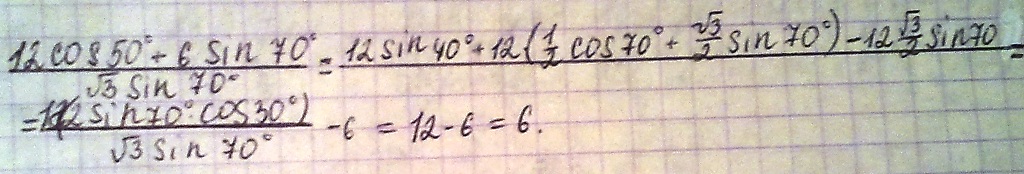 12 cos 50° + 6 sin 70° / √3 sin 70° = 12 sin 40° + 12 (1/2 cos 70° + √3/2 sin 70°) - 12 √3/2 sin 70 =
= 12 sin 70° · cos 30°) / √3 sin 70° - 6 = 12 - 6 = 6.